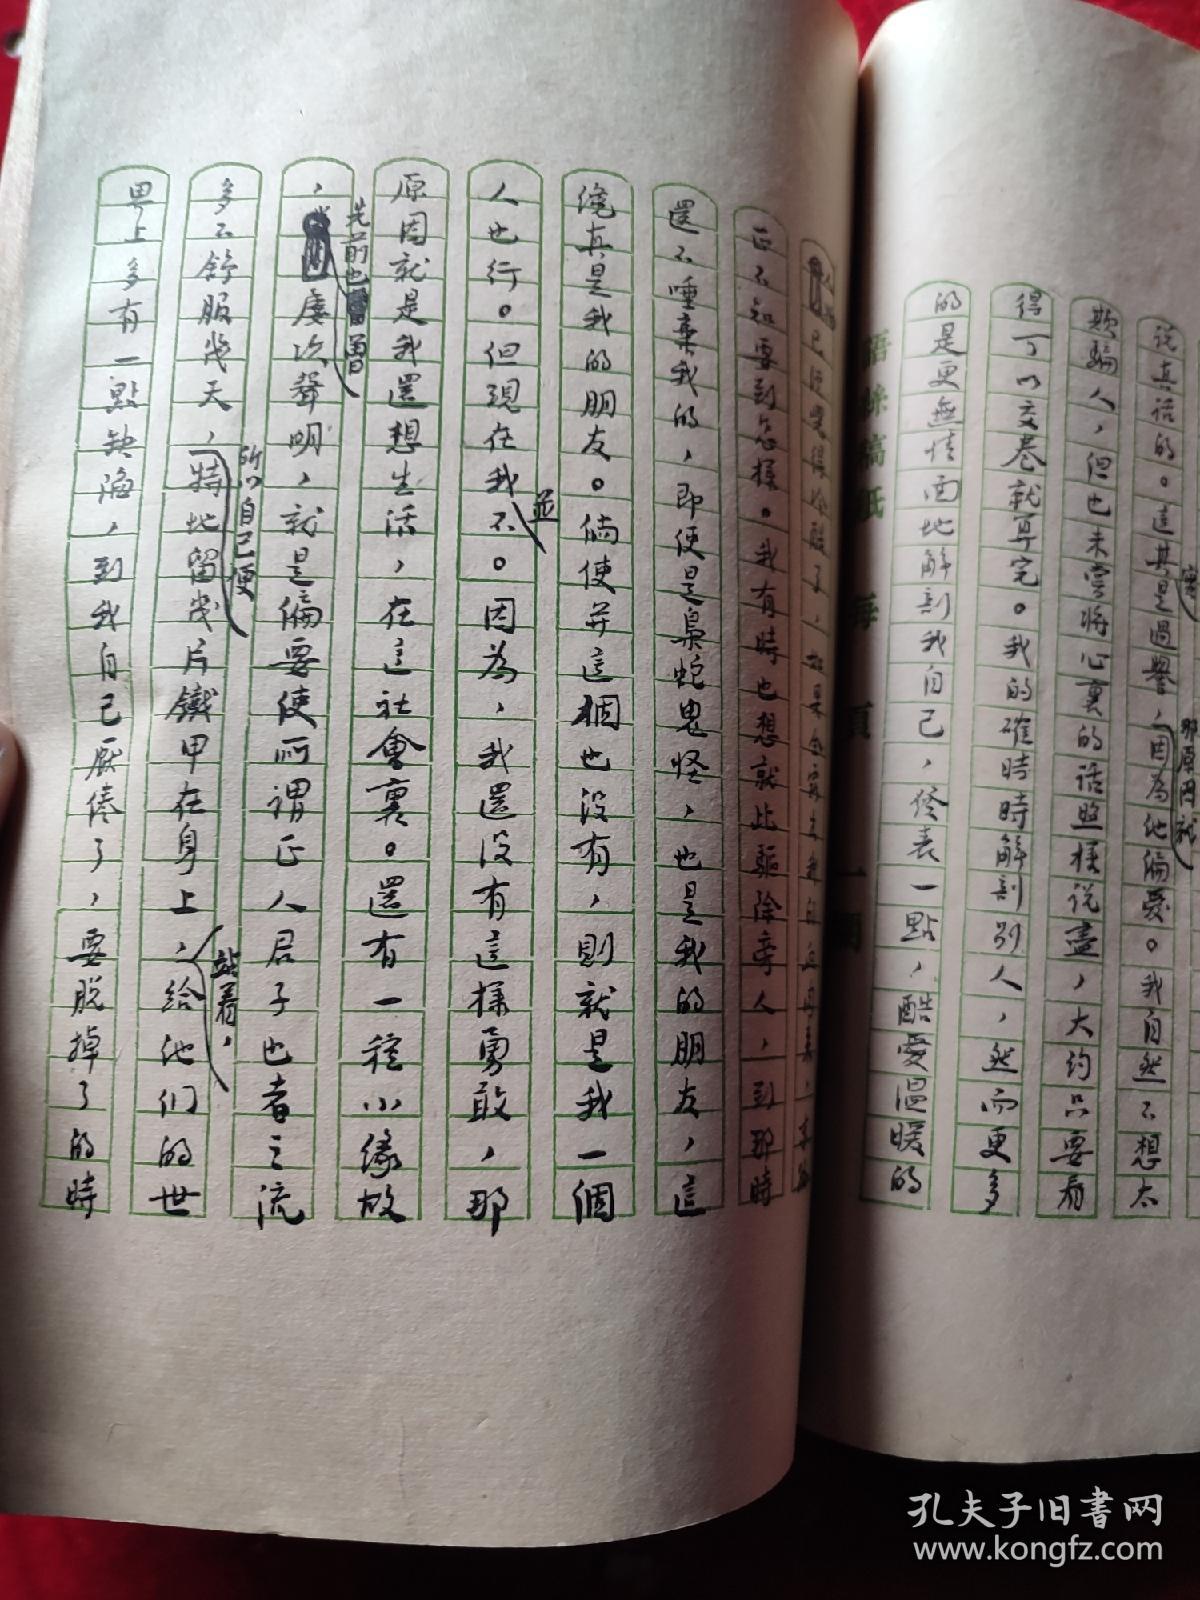 说真话的。這其實是過譽，那原因就因為他偏爱。我自然不想太
欺騙人，但也未嘗將心裏的话照樣说盡，大约只要看
得可以交卷就算完。我的確時時解剖别人，然而更多
的是更無情面地解剖我自己，發表一點，酷愛温暖的
語絲稿紙 每頁一
人物已經覺得冷酷了，如果全露出我的血肉來，末路
正不知要到怎樣。我有時也想就此驅除旁人，到那時
還不唾棄我的，即使是梟蛇鬼怪，也是我的朋友，這
纔真是我的朋友。倘使并這個也没有，則就是我一個
人也行。但現在我並不。因為，我還没有這樣勇敢，那
原因就是我還想生活，在這社會裏。還有一種小緣故
，先前也曾屢次聲明，就是偏要使所謂正人君子也者之流
多不舒服幾天，所以自己便特地留幾片鐵甲在身上，站着，給他们的世
界上多有一點缺陷，到我自己厭倦了，要脱掉了的時
孔夫子旧書网
www.kongfz.com